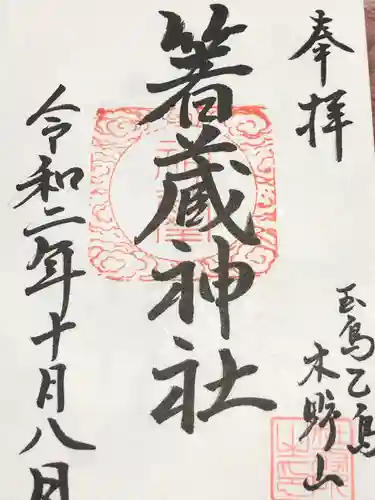 奉拝
玉島乙島
木野山
箸蔵神社
令和二年十月八日